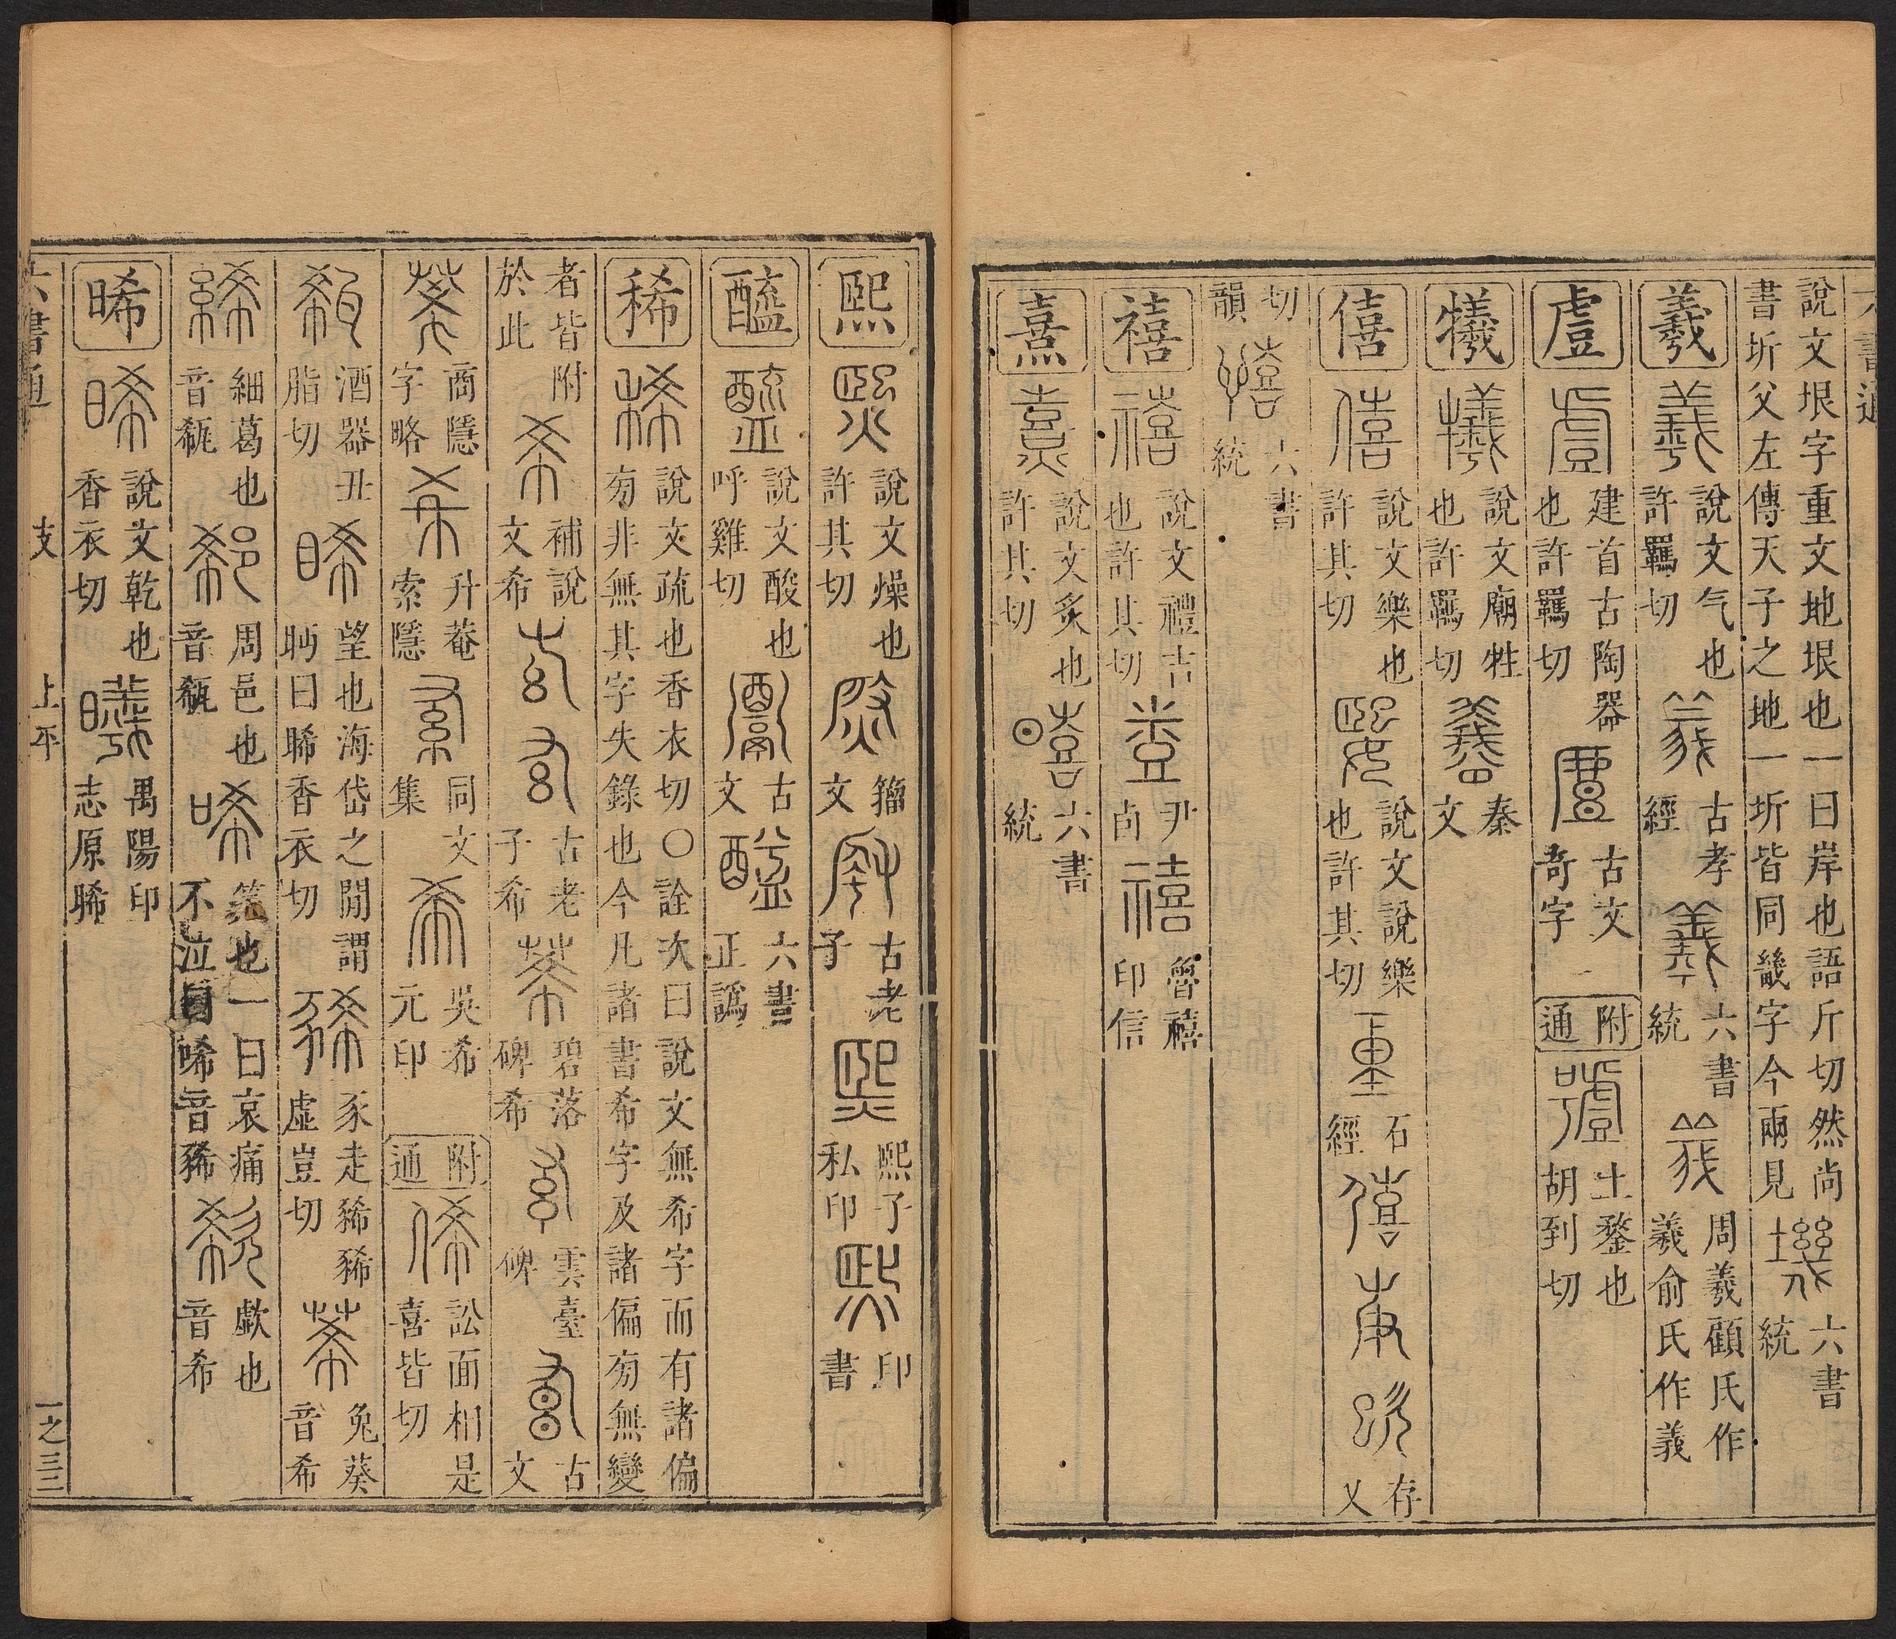 說文垠字重文地垠也一曰岸也語斤切然尚
書圻父左傳天子之地一圻皆同畿字今兩見 六書統
羲 說文气也許羈切 古孝經 六書統 周羲顧氏作羲俞氏作義
䖒 建首古陶器也許羈切 古文奇字 附通 土鍪也胡到切
犧 說文廟牲也許羈切 秦文
僖 說文樂也許其切 說文說樂也許其切 石經 存乂
切韻 六書統
禧 說文禮吉也許其切 尹卣 魯禧印信
熹 說文炙也許其切 六書統
熙 說文燥也許其切 籀文 古老子 熙子私印 印書
醯 說文酸也呼雞切 古文 六書正譌
稀 說文疏也香衣切○詮次曰說文無希字而有諸偏
旁非無其字失錄也今凡諸書希字及諸偏旁無變
者皆附於此 補說文希 古老子希 碧落碑希 雲臺碑 古文
商隱字略 升菴索隱 同文集 吳希元印 附通 訟面相是喜皆切
酒器丑脂切 望也海岱之閒謂眄曰睎香衣切 豕走豨豨虛豈切 兔葵音希
細葛也音瓻 周邑也音瓻 笑也一曰哀痛不泣曰唏音豨 歔也音希
晞 說文乾也香衣切 禺陽印志原晞
六書通 支 上平 一之三三